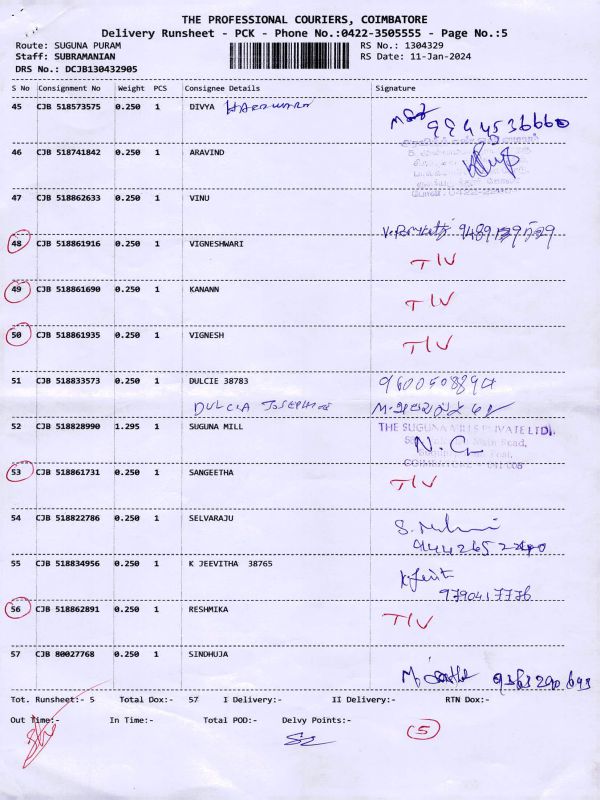 THE PROFESSIONAL COURIERS, COIMBATORE
Delivery Runsheet - PCK - Phone No.:0422-3505555 - Page No.:5
Route: SUGUNA PURAM RS No.: 1304329
Staff: SUBRAMANIAN RS Date: 11-Jan-2024
DRS No.: DCJB130432905
S No Consignment No Weight PCS Consignee Details Signature
45 CJB 518573575 0.250 1 DIVYA
46 CJB 518741842 0.250 1 ARAVIND
47 CJB 518862633 0.250 1 VINU
48 CJB 518861916 0.250 1 VIGNESHWARI T/V
49 CJB 518861690 0.250 1 KANANN T/V
50 CJB 518861935 0.250 1 VIGNESH T/V
51 CJB 518833573 0.250 1 DULCIE 38783
DULCIA
52 CJB 518828990 1.295 1 SUGUNA MILL THE SUGUNA MILLS PRIVATE LTD.,
53 CJB 518861731 0.250 1 SANGEETHA T/V
54 CJB 518822786 0.250 1 SELVARAJU
55 CJB 518834956 0.250 1 K JEEVITHA 38765
9790417776
56 CJB 518862891 0.250 1 RESHMIKA T/V
57 CJB 80027768 0.250 1 SINDHUJA
Tot. Runsheet:- 5 Total Dox:- 57 I Delivery:- II Delivery:- RTN Dox:-
Out Time:- In Time:- Total POD:- Delvy Points:-
5